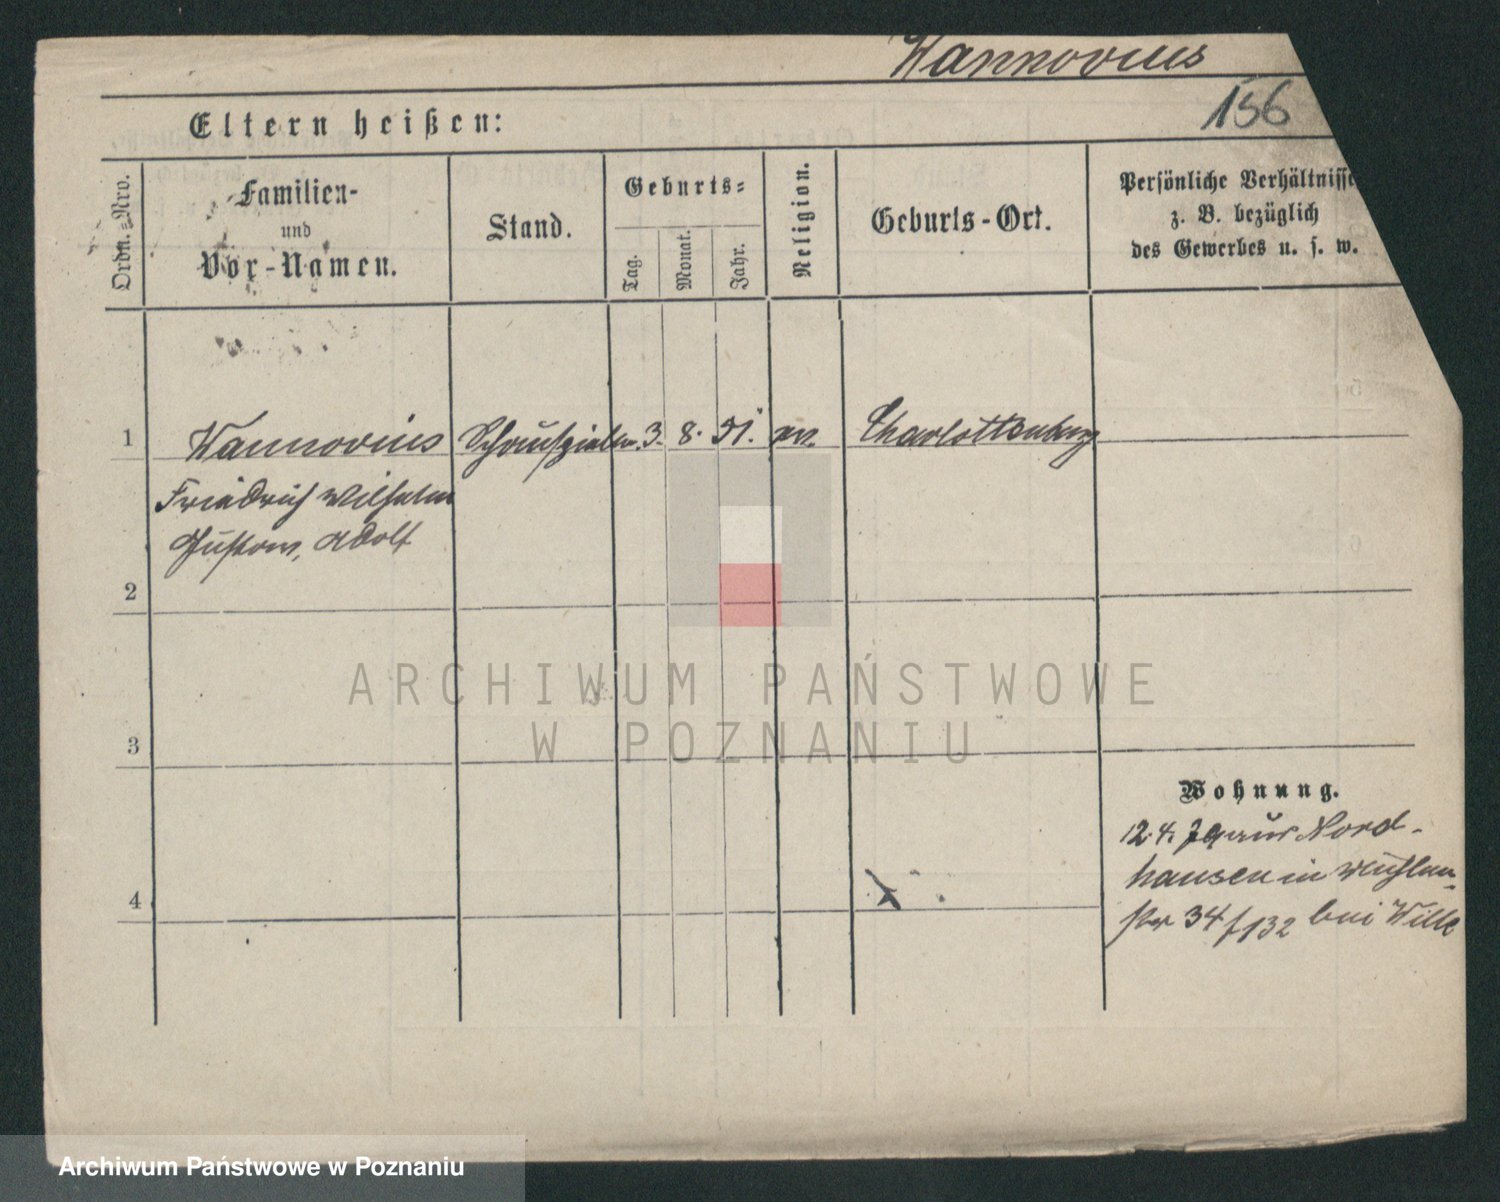 Wannovius
156
Eltern heißen:
Ordn.-Nro.
Familien-
und
Vor-Namen.
Stand.
Geburts-
Tag.
Monat.
Jahr.
Religion.
Geburts-Ort.
Persönliche Verhältnisse
z. B. bezüglich
des Gewerbes u. s. w.
1 Wannovius Schauspieler 3. 8. 51. ev. Charlottenburg
Friedrich Wilhelm
Gustav, Adolf
2
3
4
Wohnung.
12.4. 79 aus Nord-
hausen in
34/132 bei Witte
ARCHIWUM PAŃSTWOWE
W POZNANIU
Archiwum Państwowe w Poznaniu